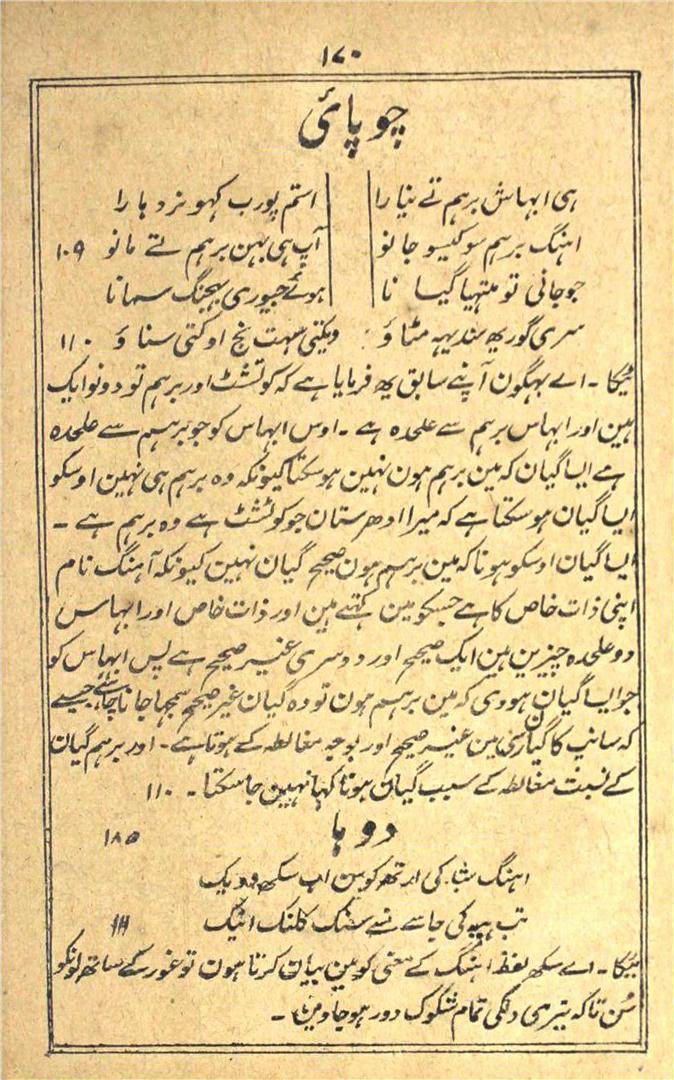 ۱۷۰
چوپائی
ہی ابہاش برہم تے نیارا استم پورب کہو نردہارا
اہنگ برہم سو کیسو جانو آپ ہی بہن برہم تے مانو ۱۰۹
جو جانی تو متہیا گیانا ہوئے جیوری بہجنگ سمانا
سری گوریھ سندیہہ مٹاؤ ویکتی سہت نج اوکتی سناؤ ۱۱۰
ٹیکا ۔ اے بہگون آپنے سابق یھ فرمایا ہے کہ کوٹشٹ اور برہم تو دونو ایک
ہین اور ابہاس برہم سے علحدہ ہے ۔ اوس ابہاس کو جو برہم سے علحدہ
ہے ایسا گیان کہ مین برہم ہون نہین ہوسکتا کیونکہ وہ برہم ہی نہین اوسکو
ایسا گیان ہوسکتا ہے کہ میرا ادھرستان جو کوٹشٹ ہے وہ برہم ہے ۔
ایسا گیان اوسکو ہونا کہ مین برہم ہون صحیح گیان نہین کیونکہ آہنگ نام
اپنی ذات خاص کا ہے جسکو مین کہتے ہین اور ذات خاص اور ابہاس
دو علحدہ چیزین ہین ایک صحیح اور دوسری غیر صحیح ہے پس ابہاس کو
جو ایسا گیان ہووی کہ مین برہم ہون تو وہ گیان غیر صحیح سمجہا جانا چاہئے جیسے
کہ سانپ کا گیان رسی مین غیر صحیح اور بوجہ مغالطہ کے ہوتا ہے ۔ اور برہم گیان
کے نسبت مغالطہ کے سبب گیان ہونا کہا نہین جاسکتا ۔ ۱۱۰
دوہا
۱۸۵
اہنگ شبد کی ارتھ کو سن اب سکھ وویک
تب ہیہ کی جاسے نسے سنک کلنک انیک ۱۱۱
ٹیکا ۔ اے سکھ لفظ اہنگ کے معنی کو مین بیان کرتا ہون تو غور کے ساتھ اونکو
سُن تاکہ تیری دلکی تمام شکوک دور ہوجاوین ۔